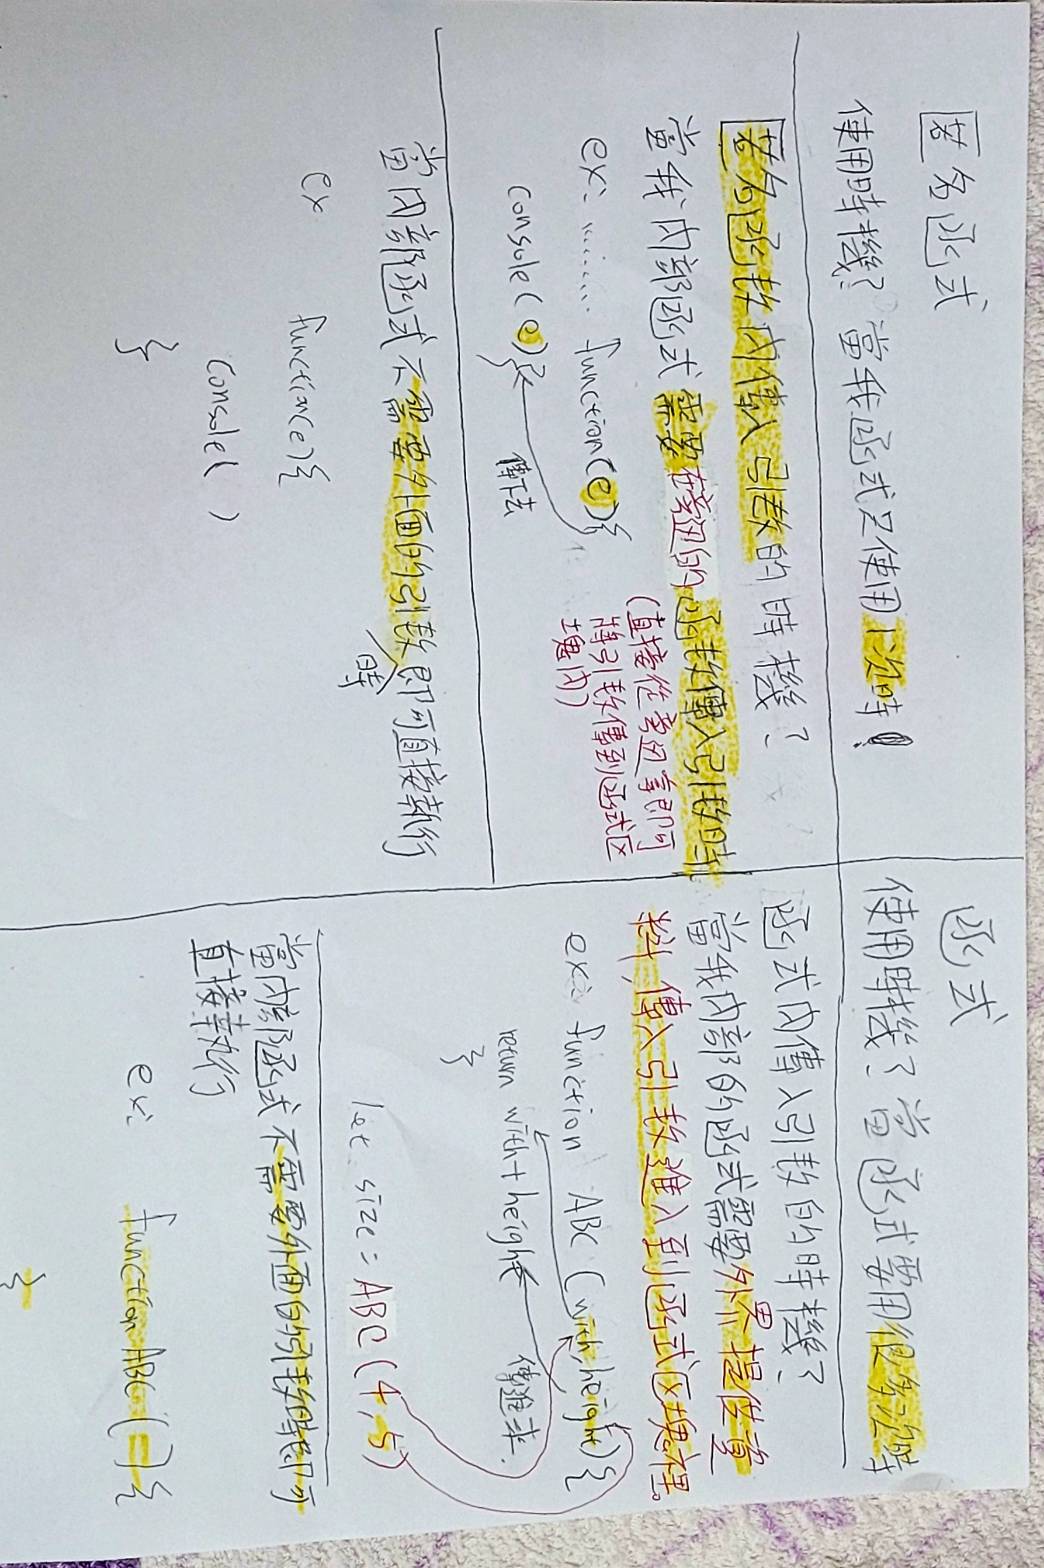 匿名函式
使用時機? 當我函式只使用1次時!
匿名函數內傳入引數的時機?
當我內部函式需要在旁边的函數傳入引數時
(直接從旁边拿即可
將引數傳到函式区
塊內)
ex: ......... function(e){
console(e)}
傳下去
}
當內部函式不需要外面的引數時即可直接執行
ex function(e){
console( )
}
函式
使用時機? 當函式要用很多次時
函式內傳入引數的時機?
當我內部的函式需要外界提供資
料,傳入引數進入到函式区塊裡。
ex: function ABC (with,height){
return with+height
傳進來.
}
let size = ABC(4,5)
當內部函式不需要外面的引數時即可
直接執行
ex: function ABC ( ){
}